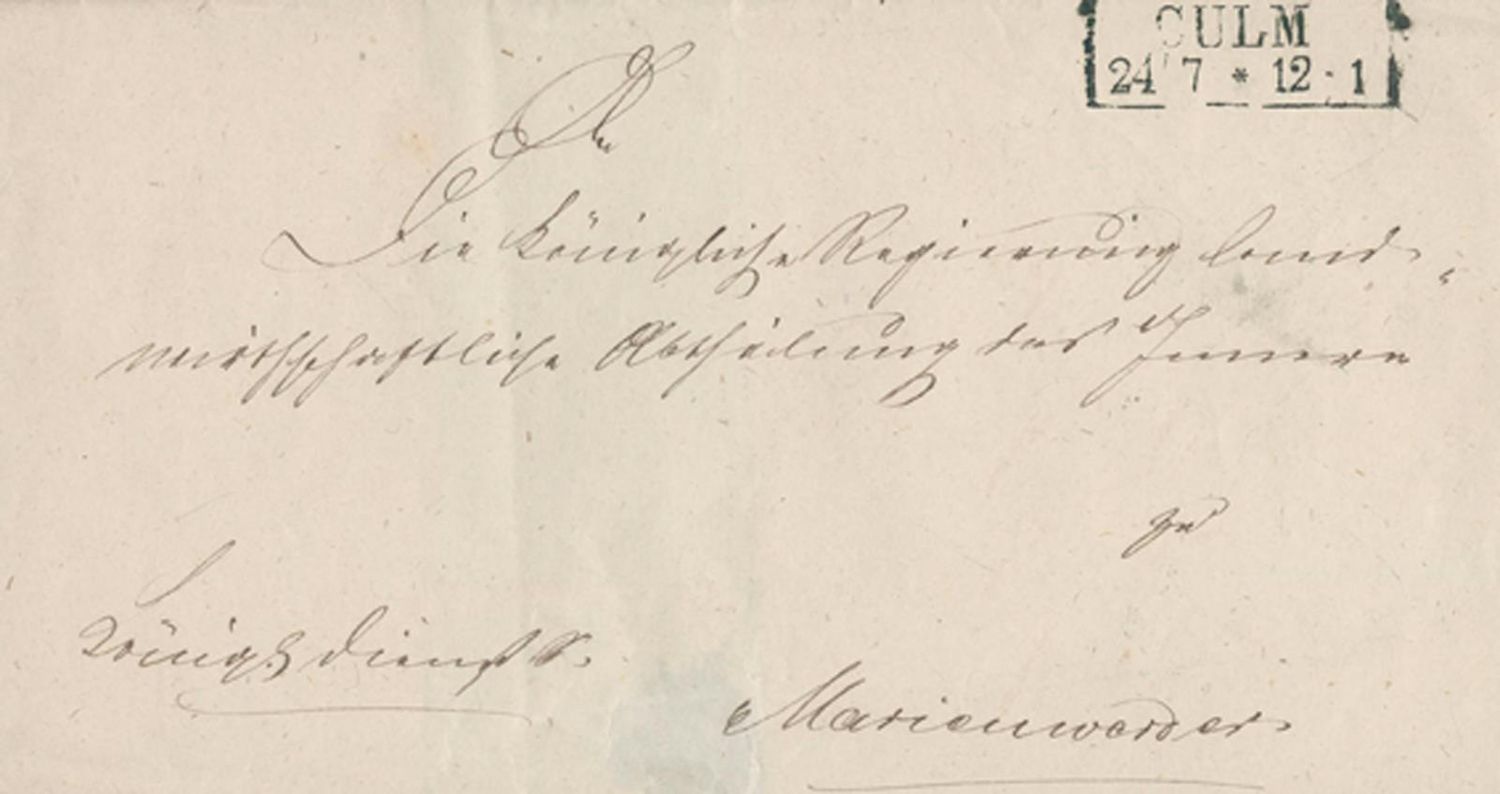 CULM
24 7 * 12-1
An
Die Königliche Regierung land-
wirthschaftliche Abtheilung des Innern
zu
Königl Dienst S.
Marienwerder